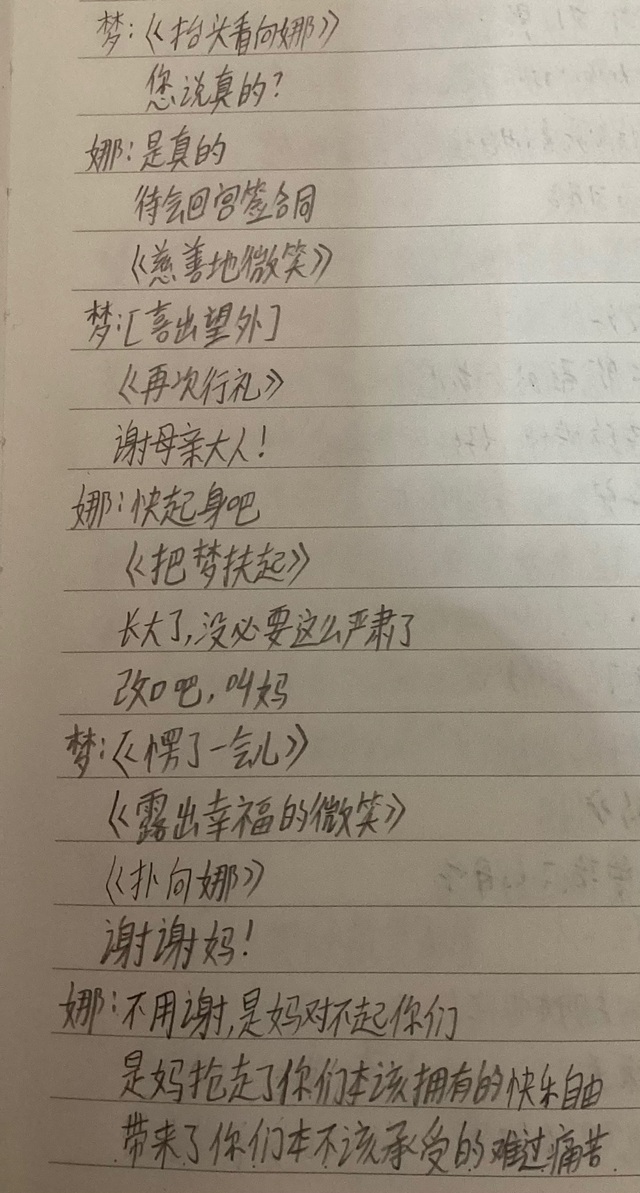 梦:《抬头看向娜》
您说真的?
娜:是真的
待会回宫签合同
《慈善地微笑》
梦:[喜出望外]
《再次行礼》
谢母亲大人!
娜:快起身吧
《把梦扶起》
长大了,没必要这么严肃了
改口吧,叫妈
梦:《愣了一会儿》
《露出幸福的微笑》
《扑向娜》
谢谢妈!
娜:不用谢,是妈对不起你们
是妈抢走了你们本该拥有的快乐自由
带来了你们本不该承受的难过痛苦